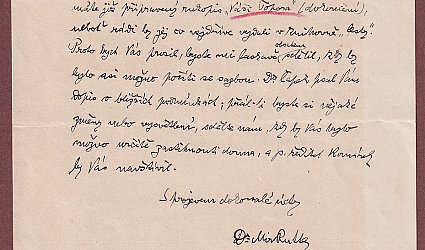 máte již připravený rukopis „Váši Popova" (dokončení),
neboť rádi by jej co nejdříve vydali v Knihovně „Cesty".
Proto bych Vás prosil, byste mi laskavě obratem sdělil, kdy by
bylo asi možno počíti se sazbou. Dr Čapek psal Vám
dopis o bližších podmínkách; přál-li byste si nějaké
změny nebo vysvětlení, sdělte nám, kdy by Vás bylo
možno určitě zastihnouti doma, a p. ředitel
by Vás navštívil.
S projevem dokonalé úcty
Dr Mir Rutte